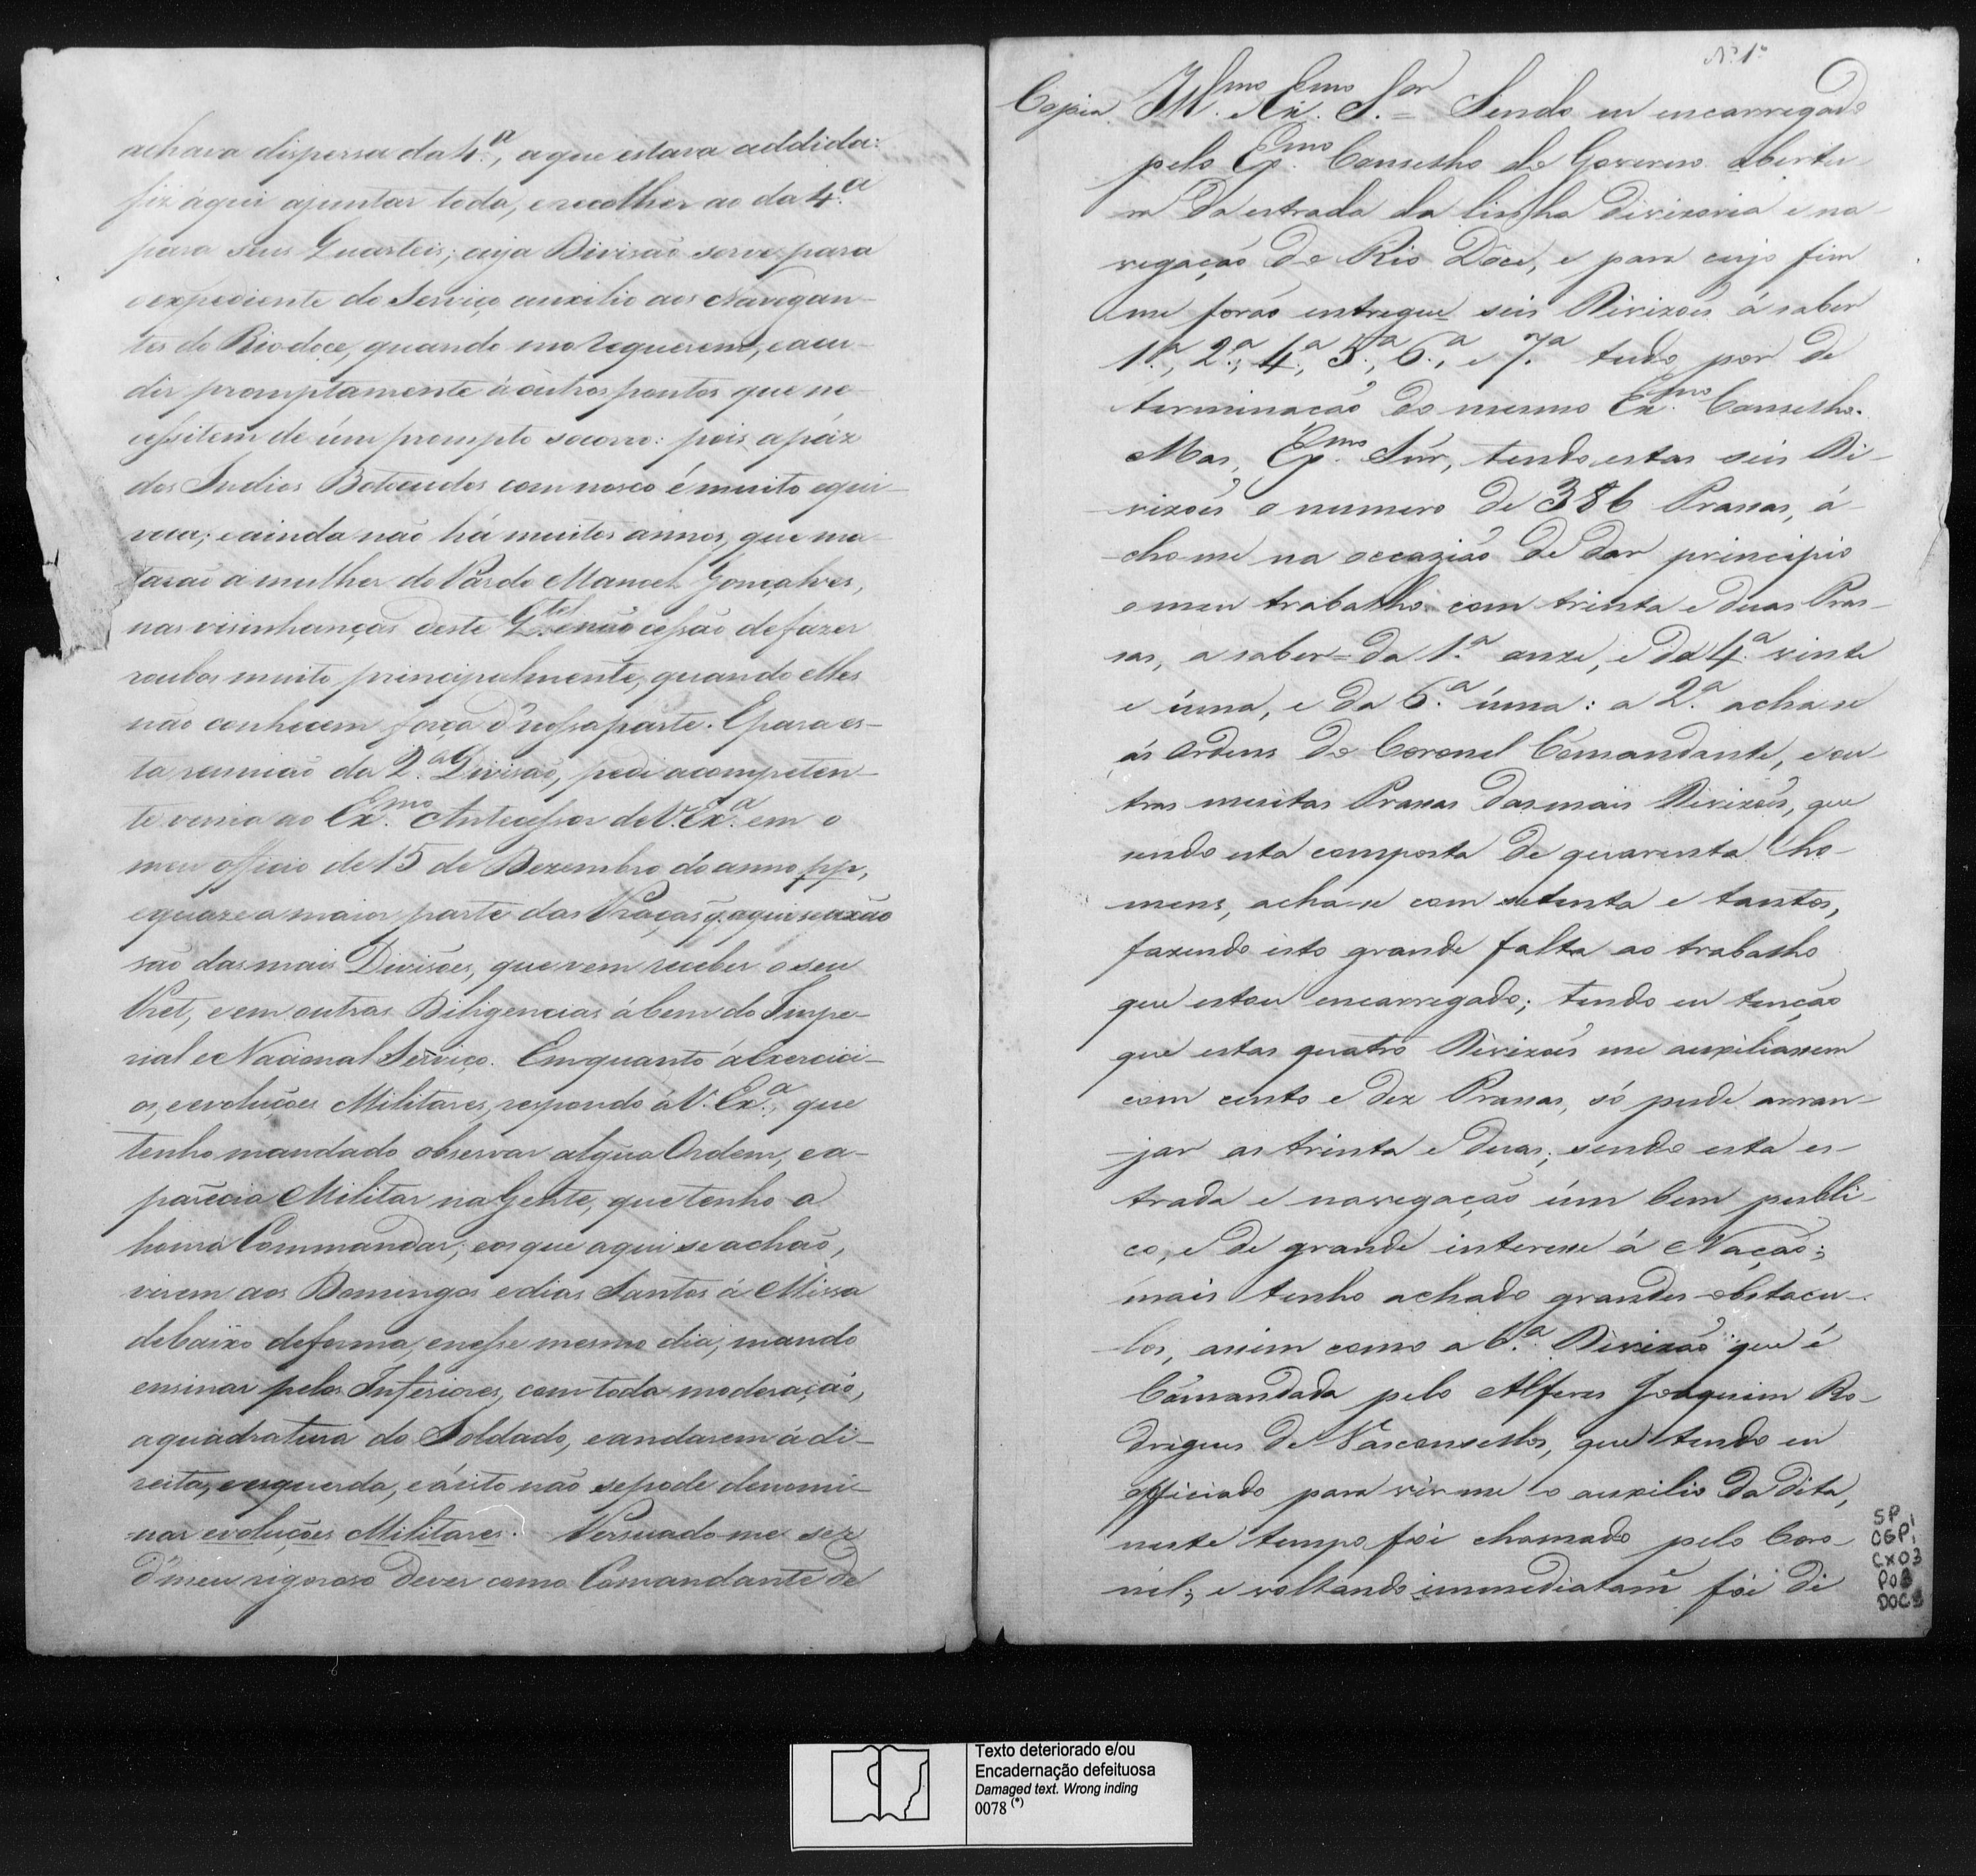 achava dispersa da 4.ª, a que estava addida:
fiz áqui ajuntar toda, e recolher ao da 4.ª
para seus Quarteis; cuja Divisaõ serve para
o expediente do Serviço auxilio aos Navegan-
tes do Riodoce, quando mo requerem, e acu-
dir promptamente á outros pontos que ne-
cessitem de úm prompto socorro: pois a páz
dos Indios Botocudos com nosco é muito equi-
voca; e ainda naõ há muitos annos, que ma-
taraõ a mulher do Pardo Manoel Gonçalves,
nas visinhanças deste Q.tel e naõ cessaõ de fazer
roubos muito principalmente, quando elles
não conhecem força d'nossa parte. E para es-
ta reuniaõ da 2.ª Divisaõ, pedi a competen-
te venia ao Ex.mo Antecessor de V. Ex.ª em o
meu officio de 15 de Dezembro do anno pp,
e quaze a maior parte das Praças q. aqui se axaõ
saõ das mais Divisões, que vem receber o seu
Pret, e em outras Diligencias á bem do Impe-
rial e Nacional Serviço. Emquanto á exercici-
os, e evoluções Militares, respondo á V. Ex.ª, que
tenho mandado observar algũa Ordem, e a-
parecia Militar na Gente, que tenho a
honra Commandar; e os que aqui se achaõ,
virem aos Domingos e dias Santos á Missa
debaixo de forma, e nesse mesmo dia, mando
ensinar pelos Inferiores, com toda moderaçaõ,
a quadratura do Soldado, e andarem á di-
reita, e esquerda, e á isto naõ se pode denomi-
nar evoluções Militares. Persuado-me ser
d'meu rigoroso Dever como Comandante de
N.º 1.º
Copia. Ill.mo e Ex.mo S.or = Sendo eu encarregado
pelo Ex.mo Conselho do Governo abertu-
ra da estrada da linha divizoria e na-
vegaçaõ do Rio Dôce, e para cujo fim
me foraõ entregue seis Divizoẽs á saber
1.ª, 2.ª, 4.ª, 5.ª, 6.ª, e 7.ª tudo por de
terminaçaõ do mesmo Ex.mo Conselho.
Mas, Ex.mo Snr, tendo estas seis Di-
vizoẽs o numero de 386 Prassas, á-
cho me na occaziaõ de dar principio
o meu trabalho com trinta e duas Pras-
sas, a saber = da 1.ª onze, e da 4.ª vinte
e úma, e da 6.ª úma: a 2.ª acha se
ás Ordens do Coronel Comandante, e ou-
tras muitas Prassas das mais Divizoẽs, que
sendo esta composta de quarenta ho-
mens, acha-se com setenta e tantos,
fazendo isto grande falta ao trabalho
que estou encarregado; tendo eu tençaõ
que estas quatro Divizoẽs me auxiliassem
com cento e dez Prassas, só pude arran-
jar as trinta e duas; sendo esta es-
trada e navegaçaõ úm bem publi-
co, e de grande interesse á Naçaõ;
mais tenho achado grandes obstacu-
los, assim como a 6.ª Divizaõ que é
Cõmandada pelo Alferes Joaquim Ro-
drigues de Vasconsellos, que tendo eu
officiado para vir-me o auxilio da dita,
neste tempo foi chamado pelo Coro-
nel; e voltando immediatam.e foi di
SP,
CGP,
CX03
P02
DOC
Texto deteriorado e/ou
Encadernação defeituosa
Damaged text. Wrong inding
0078 (*)